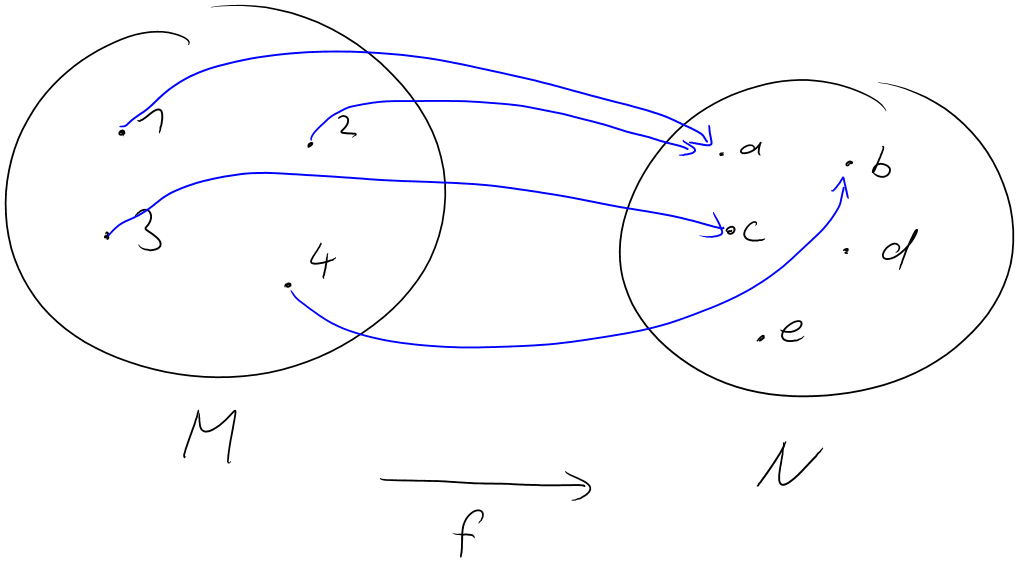 1
2
3
4
a
b
c
d
e
M
N
f